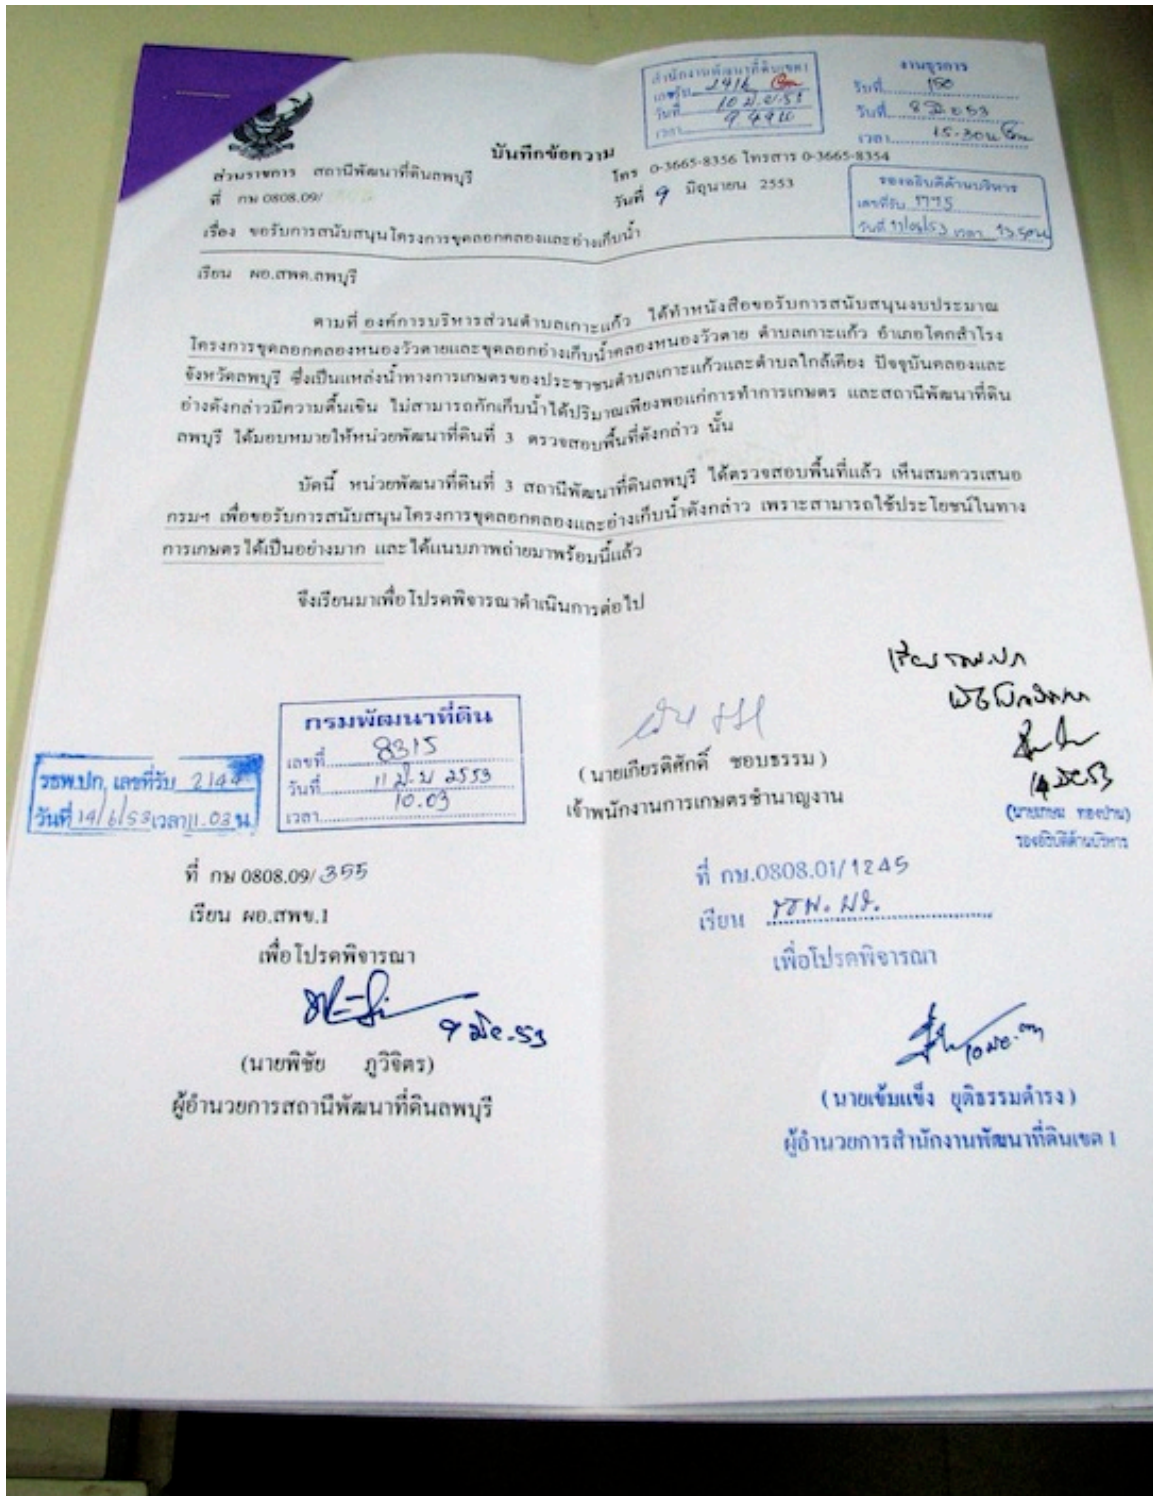 สำนักงานพัฒนาที่ดินเขต 1
เลขรับ 2416
วันที่ 10 มิ.ย. 53
เวลา
งานธุรการ
รับที่ 150
วันที่ 8 มิย 53
เวลา 15.30น
บันทึกข้อความ
ส่วนราชการ สถานีพัฒนาที่ดินลพบุรี โทร 0-3665-8356 โทรสาร 0-3665-8354
ที่ กษ 0808.09/ วันที่ 9 มิถุนายน 2553
รองอธิบดีด้านบริหาร
เลขที่รับ 1775
วันที่ 11/06/53 เวลา 13.50น
เรื่อง ขอรับการสนับสนุนโครงการขุดลอกคลองและอ่างเก็บน้ำ
เรียน ผอ.สพด.ลพบุรี
ตามที่ องค์การบริหารส่วนตำบลเกาะแก้ว ได้ทำหนังสือขอรับการสนับสนุนงบประมาณ
โครงการขุดลอกคลองหนองวัวตายและขุดลอกอ่างเก็บน้ำคลองหนองวัวตาย ตำบลเกาะแก้ว อำเภอโคกสำโรง
จังหวัดลพบุรี ซึ่งเป็นแหล่งน้ำทางการเกษตรของประชาชนตำบลเกาะแก้วและตำบลใกล้เคียง ปัจจุบันคลองและ
อ่างดังกล่าวมีความตื้นเขิน ไม่สามารถกักเก็บน้ำได้ปริมาณเพียงพอแก่การทำการเกษตร และสถานีพัฒนาที่ดิน
ลพบุรี ได้มอบหมายให้หน่วยพัฒนาที่ดินที่ 3 ตรวจสอบพื้นที่ดังกล่าว นั้น
บัดนี้ หน่วยพัฒนาที่ดินที่ 3 สถานีพัฒนาที่ดินลพบุรี ได้ตรวจสอบพื้นที่แล้ว เห็นสมควรเสนอ
กรมฯ เพื่อขอรับการสนับสนุนโครงการขุดลอกคลองและอ่างเก็บน้ำดังกล่าว เพราะสามารถใช้ประโยชน์ในทาง
การเกษตรได้เป็นอย่างมาก และได้แนบภาพถ่ายมาพร้อมนี้แล้ว
จึงเรียนมาเพื่อโปรดพิจารณาดำเนินการต่อไป
กรมพัฒนาที่ดิน
เลขที่ 8315
วันที่ 11 มิ.ย 2553
เวลา 10.03
รธพ.ปก. เลขที่รับ 2144
วันที่ 14/6/53 เวลา 11.03 น.
(นายเกียรติศักดิ์ ชอบธรรม)
เจ้าพนักงานการเกษตรชำนาญงาน
14 มิย 53
(นายเกษม ทองปาน)
รองอธิบดีด้านบริหาร
ที่ กษ 0808.09/355
เรียน ผอ.สพข.1
เพื่อโปรดพิจารณา
9 มิย.53
(นายพิชัย ภูวิจิตร)
ผู้อำนวยการสถานีพัฒนาที่ดินลพบุรี
ที่ กษ.0808.01/1245
เรียน
เพื่อโปรดพิจารณา
(นายเข้มแข็ง ยุติธรรมดำรง)
ผู้อำนวยการสำนักงานพัฒนาที่ดินเขต 1